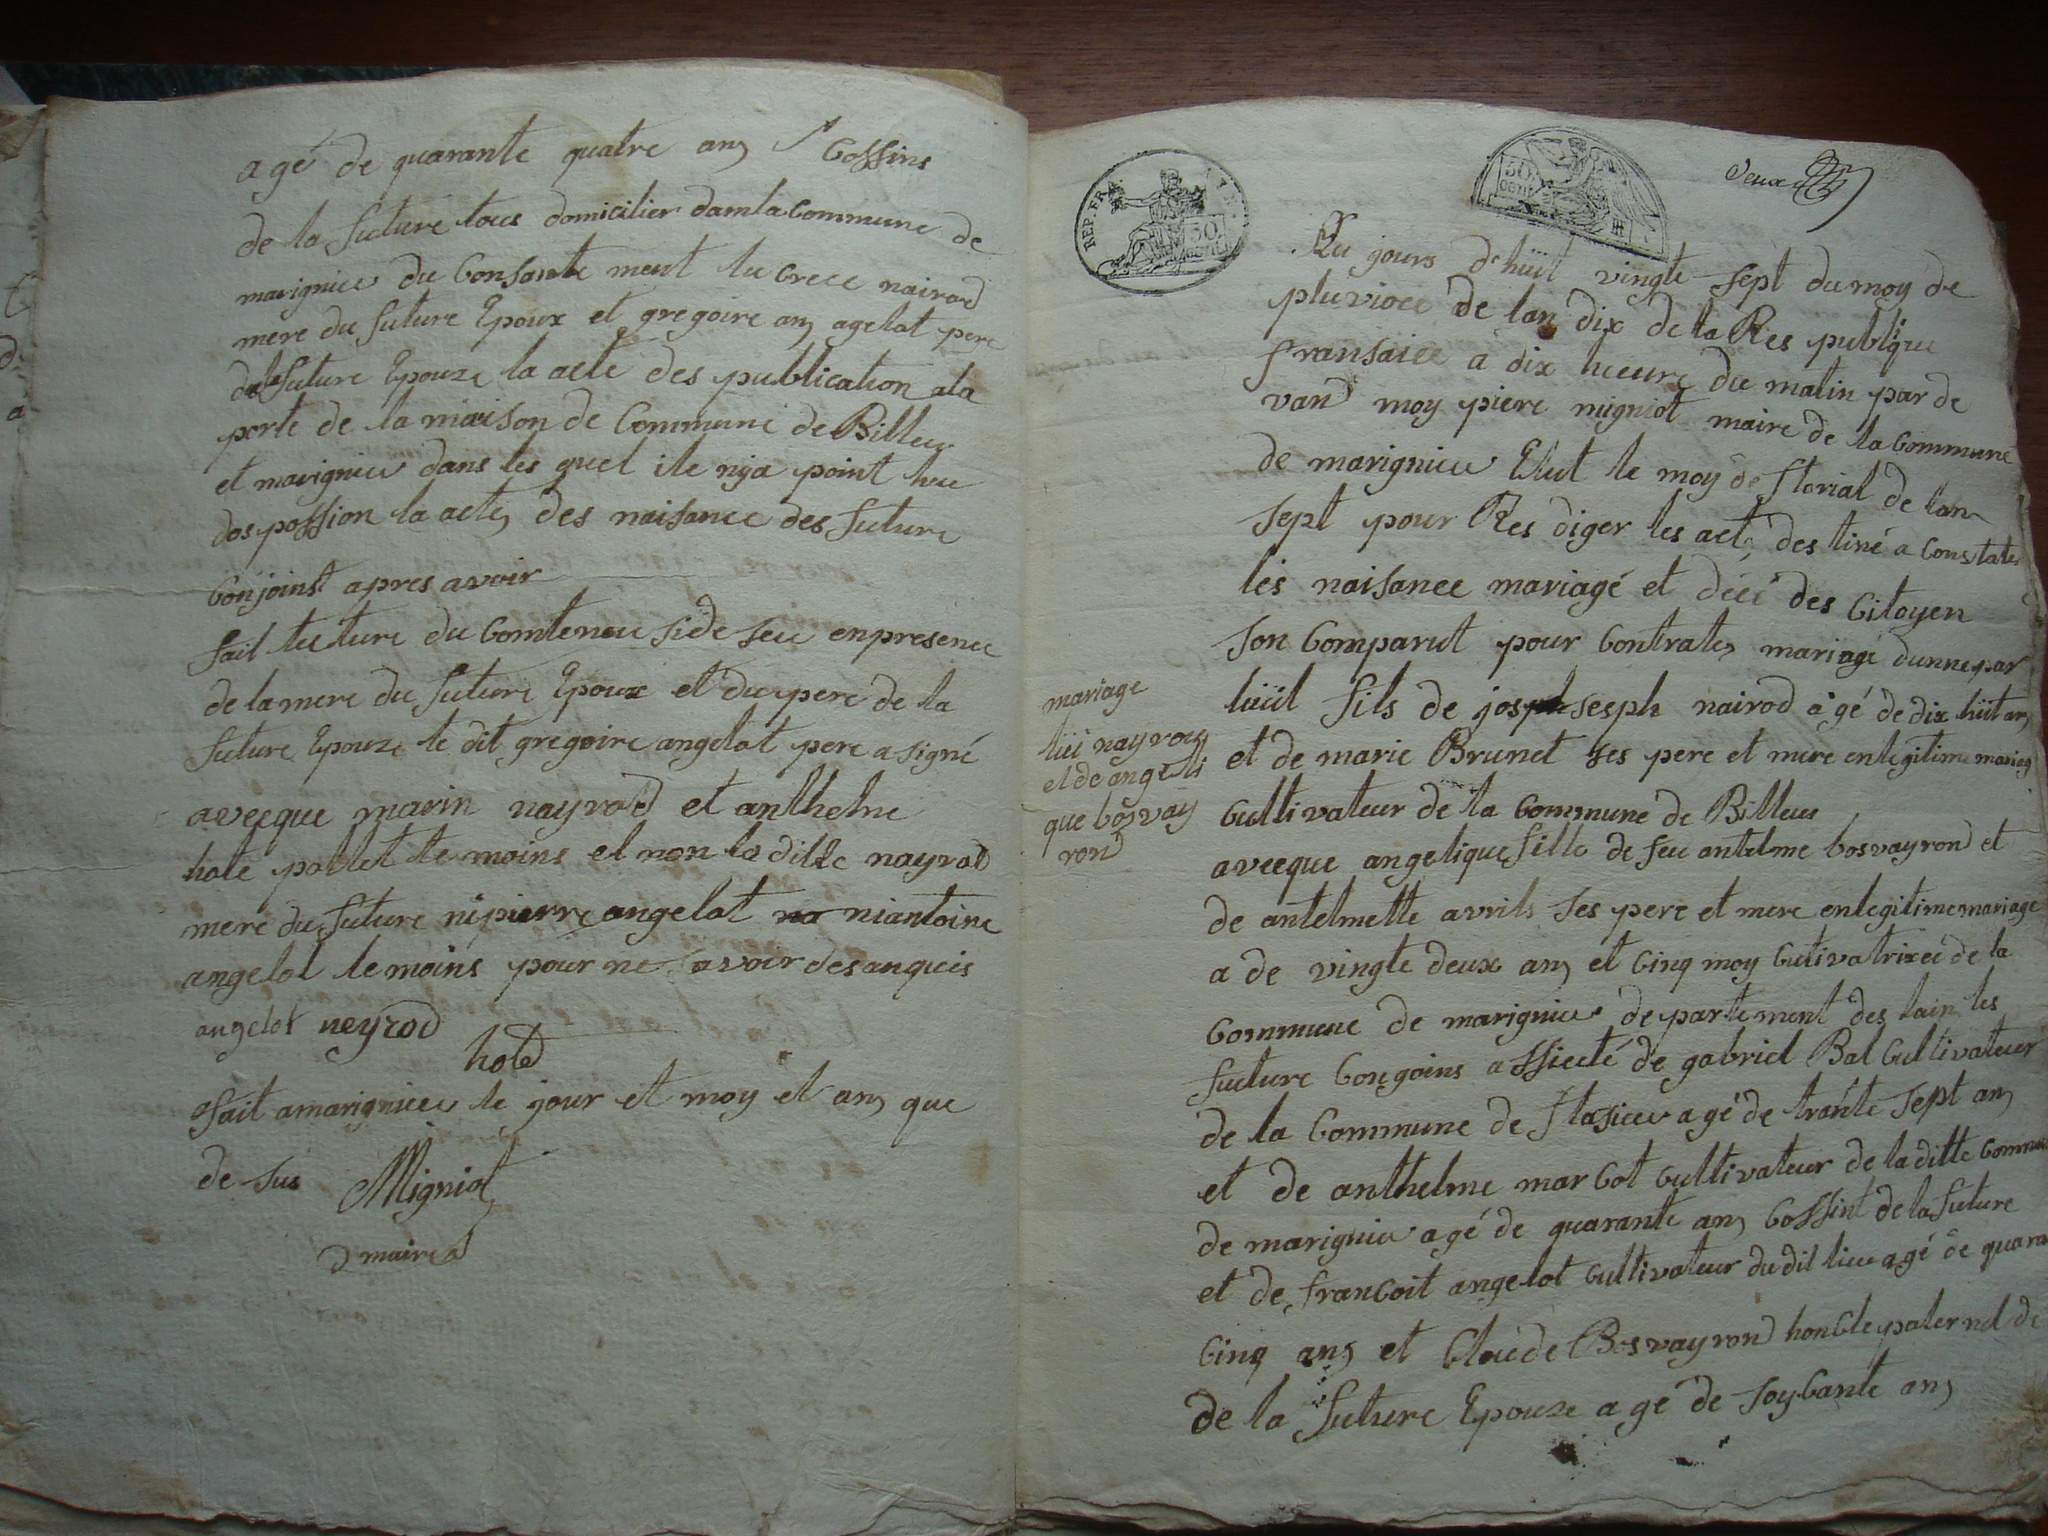 agé de quarante quatre ans Cossins
de la future tous domicilier dans la Commune de
marignieu du Consante ment lucrece nairod
mere du future Epoux et gregoire ans agelot pere
de la future Epouze la acte des publication a la
porte de la maison de Commune de Billeu
et marignieu dans les quel ile nya point hue
dospossion la acte des naisance des future
Conjoinst apres avoir
fait lecture du Conteneu side seu en presence
de la mere du future Epoux et du pere de la
future Epouze le dit gregoire angelot pere a signé
avecque marin nayrod et anthelme
hote pollet te moins et non la ditte nayrod
mere du future ni pierre angelot ni antoine
angelot te moins pour ne savoir des anquis
angelot neyrod
hote
fait a marignieu le jour et moy et ans que
de sus Migniot
maire
REP. FRA.
50
CENT.
50
CENT.
Au jours dehuit vingte sept du moy de
pluviose de lan dix de la Res publique
fransaice a dix heeure du matin par de
vand moy piere migniot maire de la Commune
de marignieu Elut le moy de florial de lan
sept pour Res diger les acte des tiné a Constate
les naisance mariagé et décé des Citoyen
son Comparut pour Contrater mariage dunne par
luiil fils de joseph nairod agé de dix huit ans
et de marie Brunet ses pere et mere en legitime mariag
Cultivateur de la Commune de Billeu
mariage
lüi nayrod
et de angeli
que bosvay
rond
avecque angelique fille de feu antelme bosvayrond et
de antelmette avrils ses pere et mere en legitime mariage
a de vingte deux ans et Cinq moy Cultivatrixee de la
Commune de marignieu de partement des lain les
future Congoins assiecté de gabriel Bal Cultivateur
de la Commune de flasieu agé de trante sept ans
et de anthelme marcot Cultivateur de la ditte Commun
de marignieu agé de quarante ans Cossint de la future
et de francoit angelot Cultivateur du dit lieu agé de quara
Cinq ans et Claude Bosvayrond honcle paternel de
de la future Epouze agé de soycante ans